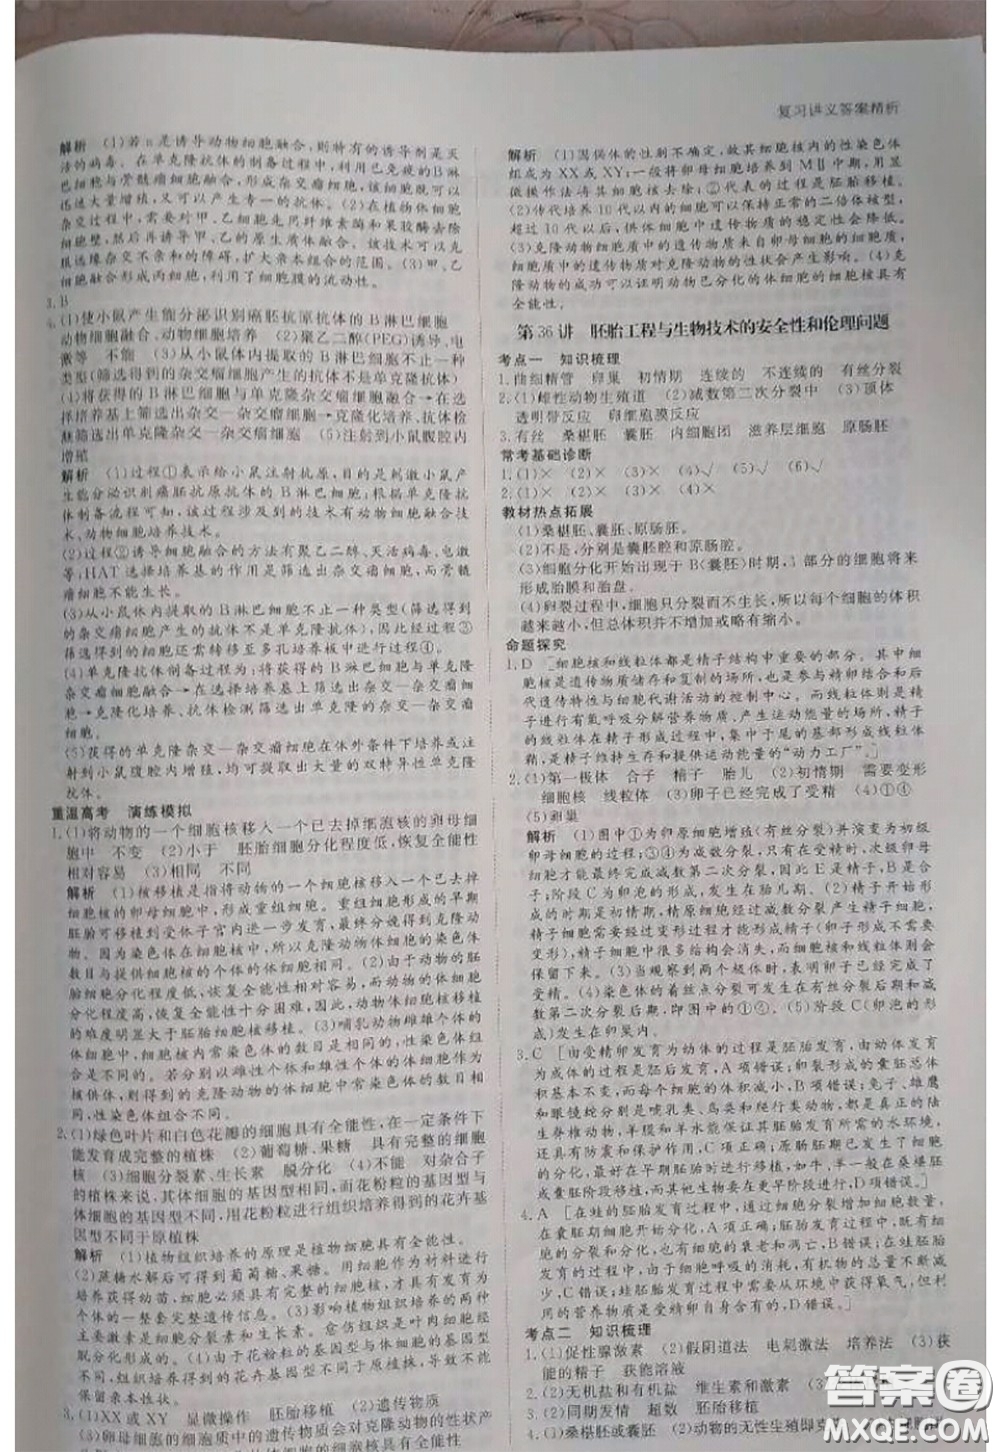 复习讲义答案精析
解析 (1)若a是诱导动物细胞融合,则特有的诱导剂是灭
活的病毒。在单克隆抗体的制备过程中,利用已免疫的B淋
巴细胞与骨髓瘤细胞融合,形成杂交瘤细胞,该细胞既可以
迅速大量增殖,又可以产生专一的抗体。(2)在植物体细胞
杂交过程中,需要对甲、乙细胞先用纤维素酶和果胶酶去除
细胞壁,然后再诱导甲、乙的原生质体融合。该技术可以克
服远缘杂交不亲和的障碍,扩大亲本组合的范围。(3)甲、乙
细胞融合形成丙细胞,利用了细胞膜的流动性。
3.B
4.(1)使小鼠产生能分泌识别癌胚抗原抗体的B淋巴细胞
动物细胞融合、动物细胞培养 (2)聚乙二醇(PEG)诱导、电
激等 不能 (3)从小鼠体内提取的B淋巴细胞不止一种
类型(筛选得到的杂交瘤细胞产生的抗体不是单克隆抗体)
(4)将获得的B淋巴细胞与单克隆杂交瘤细胞融合→在选
择培养基上筛选出杂交—杂交瘤细胞→克隆化培养、抗体检
测筛选出单克隆杂交—杂交瘤细胞 (5)注射到小鼠腹腔内
增殖
解析 (1)过程①表示给小鼠注射抗原,目的是刺激小鼠产
生能分泌识别癌胚抗原抗体的B淋巴细胞;根据单克隆抗
体制备流程可知,该过程涉及到的技术有动物细胞融合技
术、动物细胞培养技术。
(2)过程②诱导细胞融合的方法有聚乙二醇、灭活病毒、电激
等;HAT选择培养基的作用是筛选出杂交瘤细胞,而骨髓
瘤细胞不能生长。
(3)从小鼠体内提取的B淋巴细胞不止一种类型(筛选得到
的杂交瘤细胞产生的抗体不是单克隆抗体),因此经过程③
筛选得到的细胞还需转移至多孔培养板中进行过程④。
(4)单克隆抗体制备过程为:将获得的B淋巴细胞与单克隆
杂交瘤细胞融合→在选择培养基上筛选出杂交—杂交瘤细胞
→克隆化培养、抗体检测筛选出单克隆杂交—杂交瘤
细胞。
(5)获得的单克隆杂交—杂交瘤细胞在体外条件下培养或注
射到小鼠腹腔内增殖,均可提取出大量的双特异性单克隆
抗体。
重温高考 演练模拟
1.(1)将动物的一个细胞核移入一个已去掉细胞核的卵母细
胞中 不变 (2)小于 胚胎细胞分化程度低,恢复全能性
相对容易 (3)相同 不同
解析 (1)核移植是指将动物的一个细胞核移入一个已去掉
细胞核的卵母细胞中,形成重组细胞。重组细胞形成的早期
胚胎可移植到受体子宫内进一步发育,最终分娩得到克隆动
物。因为染色体在细胞核中,所以克隆动物体细胞的染色体
数目与提供细胞核的个体的体细胞相同。(2)由于动物的胚
胎细胞分化程度低,恢复全能性相对容易,而动物体细胞
分化程度高,恢复全能性十分困难,因此,动物体细胞核移植
的难度明显大于胚胎细胞核移植。(3)哺乳动物雌雄个体的
体细胞中,细胞核内常染色体的数目是相同的,性染色体组
合是不同的。若分别以雌性个体和雄性个体的体细胞作为
核供体,则得到的克隆动物的体细胞中常染色体的数目相
同,性染色体组合不同。
2.(1)绿色叶片和白色花瓣的细胞具有全能性,在一定条件下
能发育成完整的植株 (2)葡萄糖、果糖 具有完整的细胞
核 (3)细胞分裂素、生长素 脱分化 (4)不能 对杂合子
的植株来说,其体细胞的基因型相同,而花粉粒的基因型与
体细胞的基因型不同,用花粉粒进行组织培养得到的花卉基
因型不同于原植株
解析 (1)植物组织培养的原理是植物细胞具有全能性。
(2)蔗糖水解后可得到葡萄糖、果糖。用同一种外植体材料
获得试管苗,细胞必须具有完整的细胞核,才具有发育成
一个完整植株的遗传信息。(3)影响植物组织培养的激素
主要是细胞分裂素和生长素。愈伤组织是由外植体经
脱分化形成的。(4)由于花粉粒的基因型与体细胞的基因型
不同,对杂合子来说,用花粉粒进行组织培养得到的花卉
基因型不同于原植株,不能保留原本性状。
3.(1)XX或XY 显微操作 胚胎移植 (2)遗传物质
(3)卵母细胞的细胞质中的遗传物质会对克隆动物的性状产
解析 (1)因供体的性别不确定,故其细胞核内的性染色体
组成为XX或XY;一般将卵母细胞培养到MⅡ中期,用显
微操作方法将其细胞核去除;②代表的过程是胚胎移植。
(2)传代培养10代以内的细胞可以保持正常的二倍体核型,
超过10代以后,供体细胞中遗传物质的稳定性会降低。
(3)克隆动物细胞质中的遗传物质来自卵母细胞的细胞质,
细胞质中的遗传物质对克隆动物的性状会产生影响。(4)克
隆动物的成功可以证明动物已分化的体细胞的细胞核具有
全能性。
第36讲 胚胎工程与生物技术的安全性和伦理问题
考点一 知识梳理
1.曲细精管 卵巢 初情期 连续的 不连续的 有丝分裂
2.(1)雌性动物生殖道 (2)减数第二次分裂中 (3)顶体
透明带反应 卵细胞膜反应
3.有丝 桑椹胚 囊胚 内细胞团 滋养层细胞 原肠胚
常考基础诊断
1.(1)× (2)× (3)× (4)√ (5)√ (6)√
2.(1)× (2)× (3)× (4)×
教材热点拓展
(1)桑椹胚、囊胚、原肠胚。
(2)不是,分别是囊胚腔和原肠腔。
(3)细胞分化开始出现于B(囊胚)时期,3部分的细胞将来
形成胎膜和胎盘。
(4)卵裂过程中,细胞只分裂而不生长,所以每个细胞的体积
越来越小,但总体积并不增加或略有缩小。
命题探究
1.D [细胞核和线粒体都是精子结构中重要的部分。其中细
胞核是遗传物质储存和复制的场所,也是参与精卵结合和后
代遗传特性与细胞代谢活动的控制中心。而线粒体则是精
子进行有氧呼吸分解营养物质、产生运动能量的场所,精子
的线粒体在精子形成过程中,集中于尾的基部形成线粒体
鞘,是精子维持生存和提供运动能量的“动力工厂”。]
2.(1)第一极体 合子 精子 胎儿 (2)初情期 需要变形
细胞核 线粒体 (3)卵子已经完成了受精 (4)①④
(5)卵巢
解析 (1)图中①为卵原细胞增殖(有丝分裂)并演变为初级
卵母细胞的过程;③④为减数分裂,只有在受精时,次级卵母
细胞才能最终完成减数第二次分裂,因此E是精子,F是胎
儿;阶段C为卵泡的形成,发生在胎儿期。(2)精子开始形
成的时期是初情期,精原细胞经过减数分裂产生精子细胞,
精子细胞需要经过变形过程才能形成精子(卵子形成不需要
变形),精子细胞中很多结构会消失,而细胞核和线粒体则会
保留下来。(3)当观察到两个极体时,表示卵子已经完成了
受精。(4)染色体的着丝点分裂发生在有丝分裂后期和减
数第二次分裂后期,即图中的①④。(5)阶段C(卵泡的形
成)发生在卵巢内。
3.C [由受精卵发育为幼体的过程是胚胎发育,由幼体发育
为成体的过程是胚后发育,A项错误;卵裂期,胚胎的总体
积基本不变,而每个细胞的体积减小,B项错误;兔子、雄鹰
和眼镜蛇分别是哺乳类、鸟类和爬行类动物,都是真正的陆
生脊椎动物,羊膜和羊水能保证其胚胎发育所需的水环境,
还具有防震和保护作用,C项正确;原肠胚已经高度
分化,最好在早期胚胎阶段进行移植,一般在桑椹胚或囊
胚阶段移植,而有些动物要在更早阶段移植,D项错误。]
4.A [在蛙的胚胎发育过程中,通过细胞分裂增加细胞数量,
在囊胚期细胞开始分化,A项正确;蛙的胚胎发育过程有细
胞的分裂和分化,也有细胞的衰老和凋亡,B错误;在蛙胚胎
发育中,由于细胞呼吸的消耗,有机物的总量不断减少,
C错误;蛙胚胎发育过程中需要从环境中获得氧气,但利
用的营养物质是受精卵自身含有的,D错误。]
考点二 知识梳理
1.(1)促性腺激素 (2)假阴道法 电刺激法 培养法 (3)获
能的精子 获能溶液
2.(2)无机盐和有机盐 维生素和激素 (3)
3.(2)同期发情 超数 胚胎移植
4.(1)桑椹胚或囊胚 (2)动物的无性生殖即克
答案圈
MXQE.COM